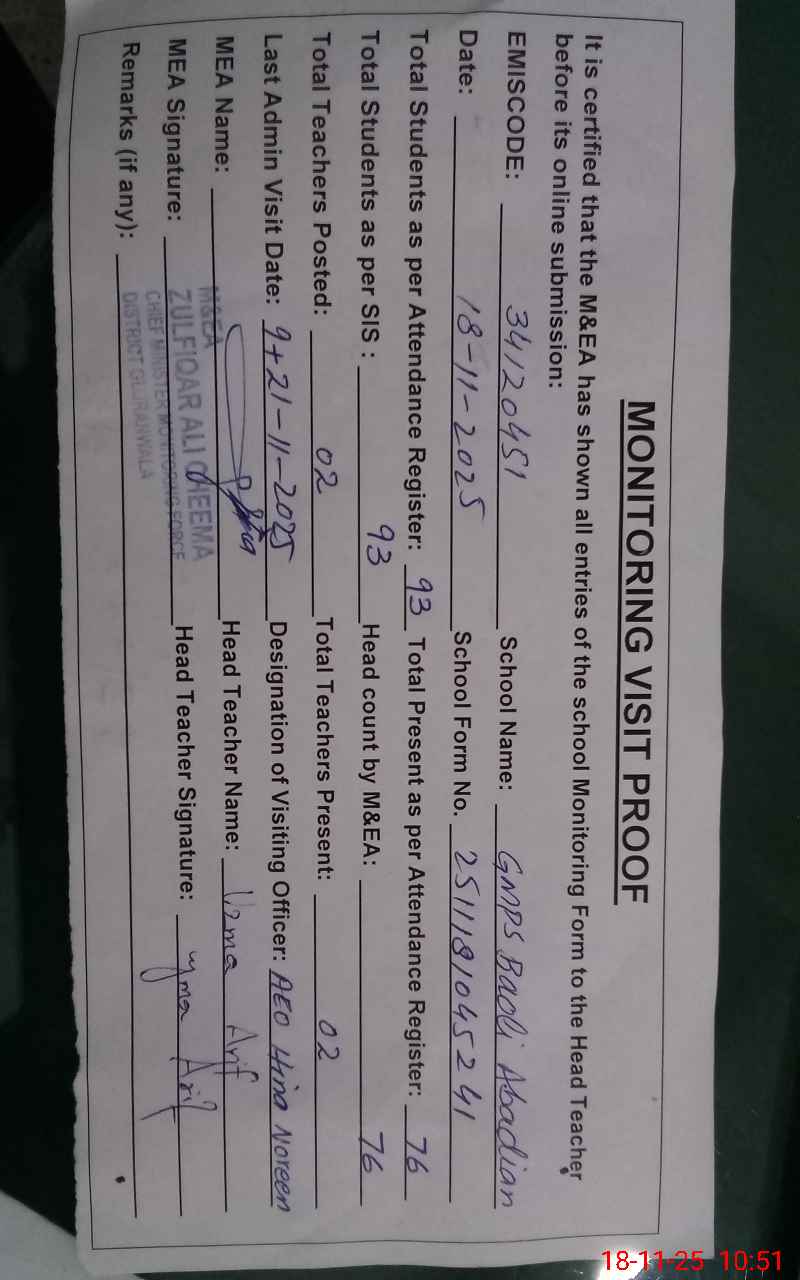 MONITORING VISIT PROOF
It is certified that the M&EA has shown all entries of the school Monitoring Form to the Head Teacher
before its online submission:
EMISCODE: 34120451 School Name: GMPS Baoli Abadian
Date: 18-11-2025 School Form No. 2511181045241
Total Students as per Attendance Register: 93 Total Present as per Attendance Register: 76
Total Students as per SIS : 93 Head count by M&EA: 76
Total Teachers Posted: 02 Total Teachers Present: 02
Last Admin Visit Date: 9+21-11-2025 Designation of Visiting Officer: AEO Hina Noreen
MEA Name: Head Teacher Name: Uzma Arif
MEA Signature: Head Teacher Signature: Uzma Arif
Remarks (if any):
M&EA
ZULFIQAR ALI CHEEMA
CHIEF MINISTER MONITORING FORCE
DISTRICT GUJRANWALA
18-11-25 10:51